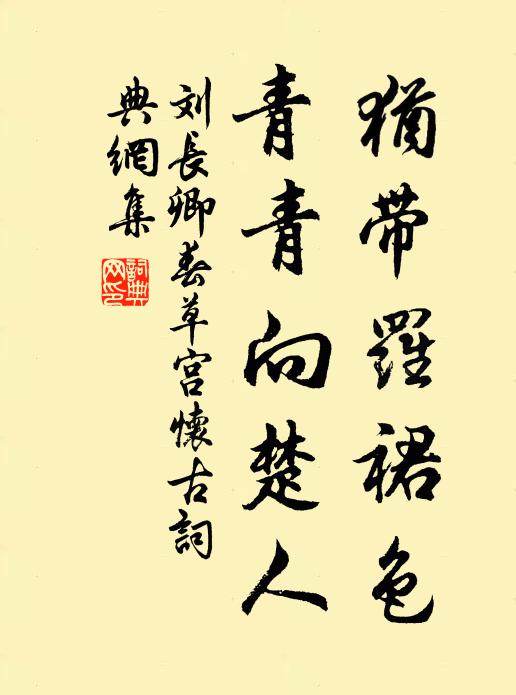 猶帶羅裙色
青青向楚人
刘長卿春草宫懷古詞
典網集
詞典
网印